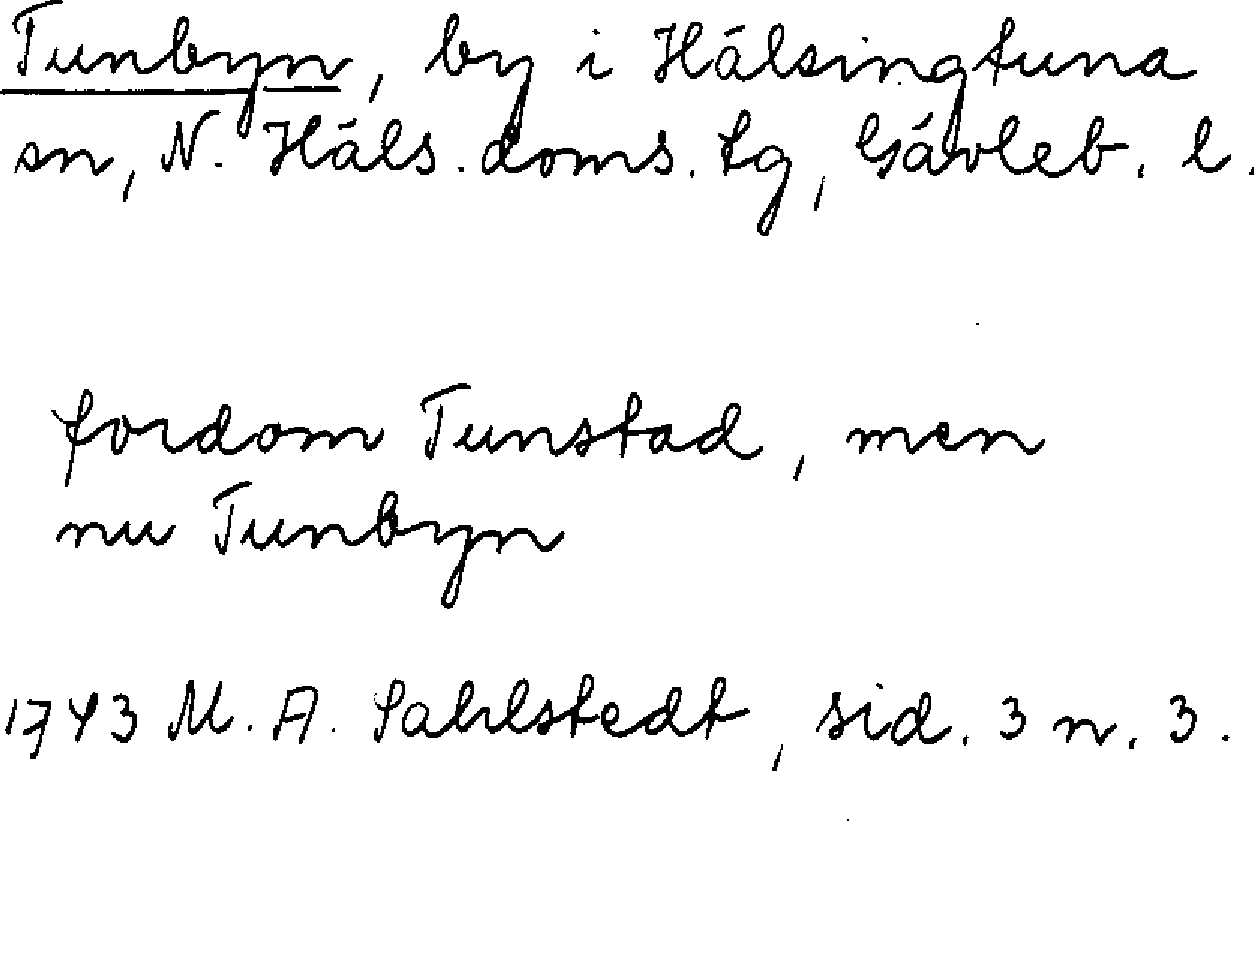 Tunbyn, by i Hälsingtuna
sn, N. Häls. doms. tg, Gävleb. l.
fordom Tunstad, men
nu Tunbyn
1743 M. A. Sahlstedt, sid. 3 n. 3.